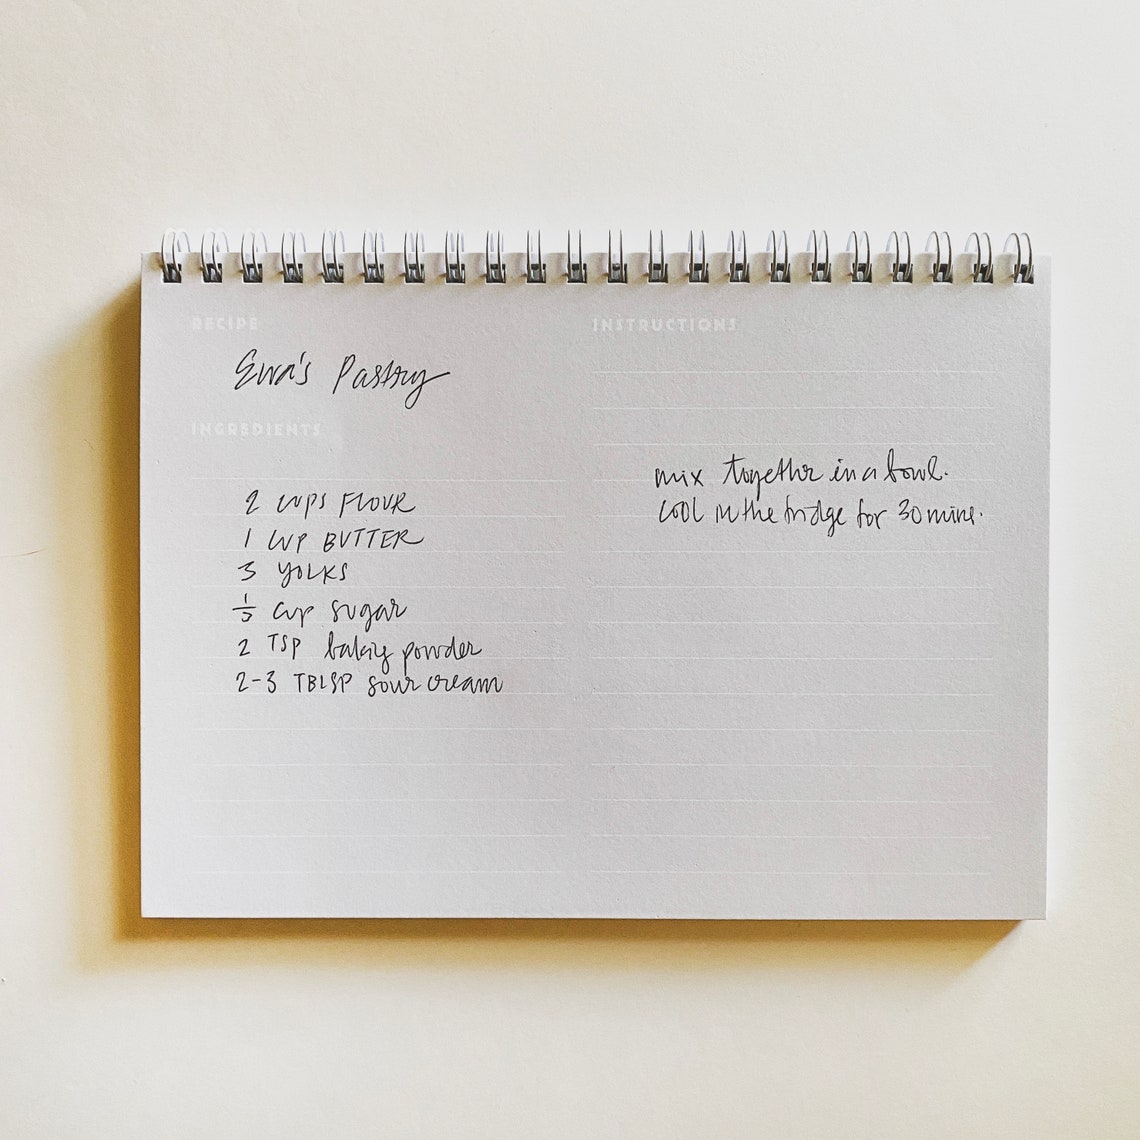 RECIPE
Ewa's Pastry
INGREDIENTS
2 cups FLOUR
1 CUP BUTTER
3 YOLKS
cup sugar
2 TSP baking powder
2-3 TBLSP sour cream
INSTRUCTIONS
mix together in a bowl.
cool in the fridge for 30 mins.